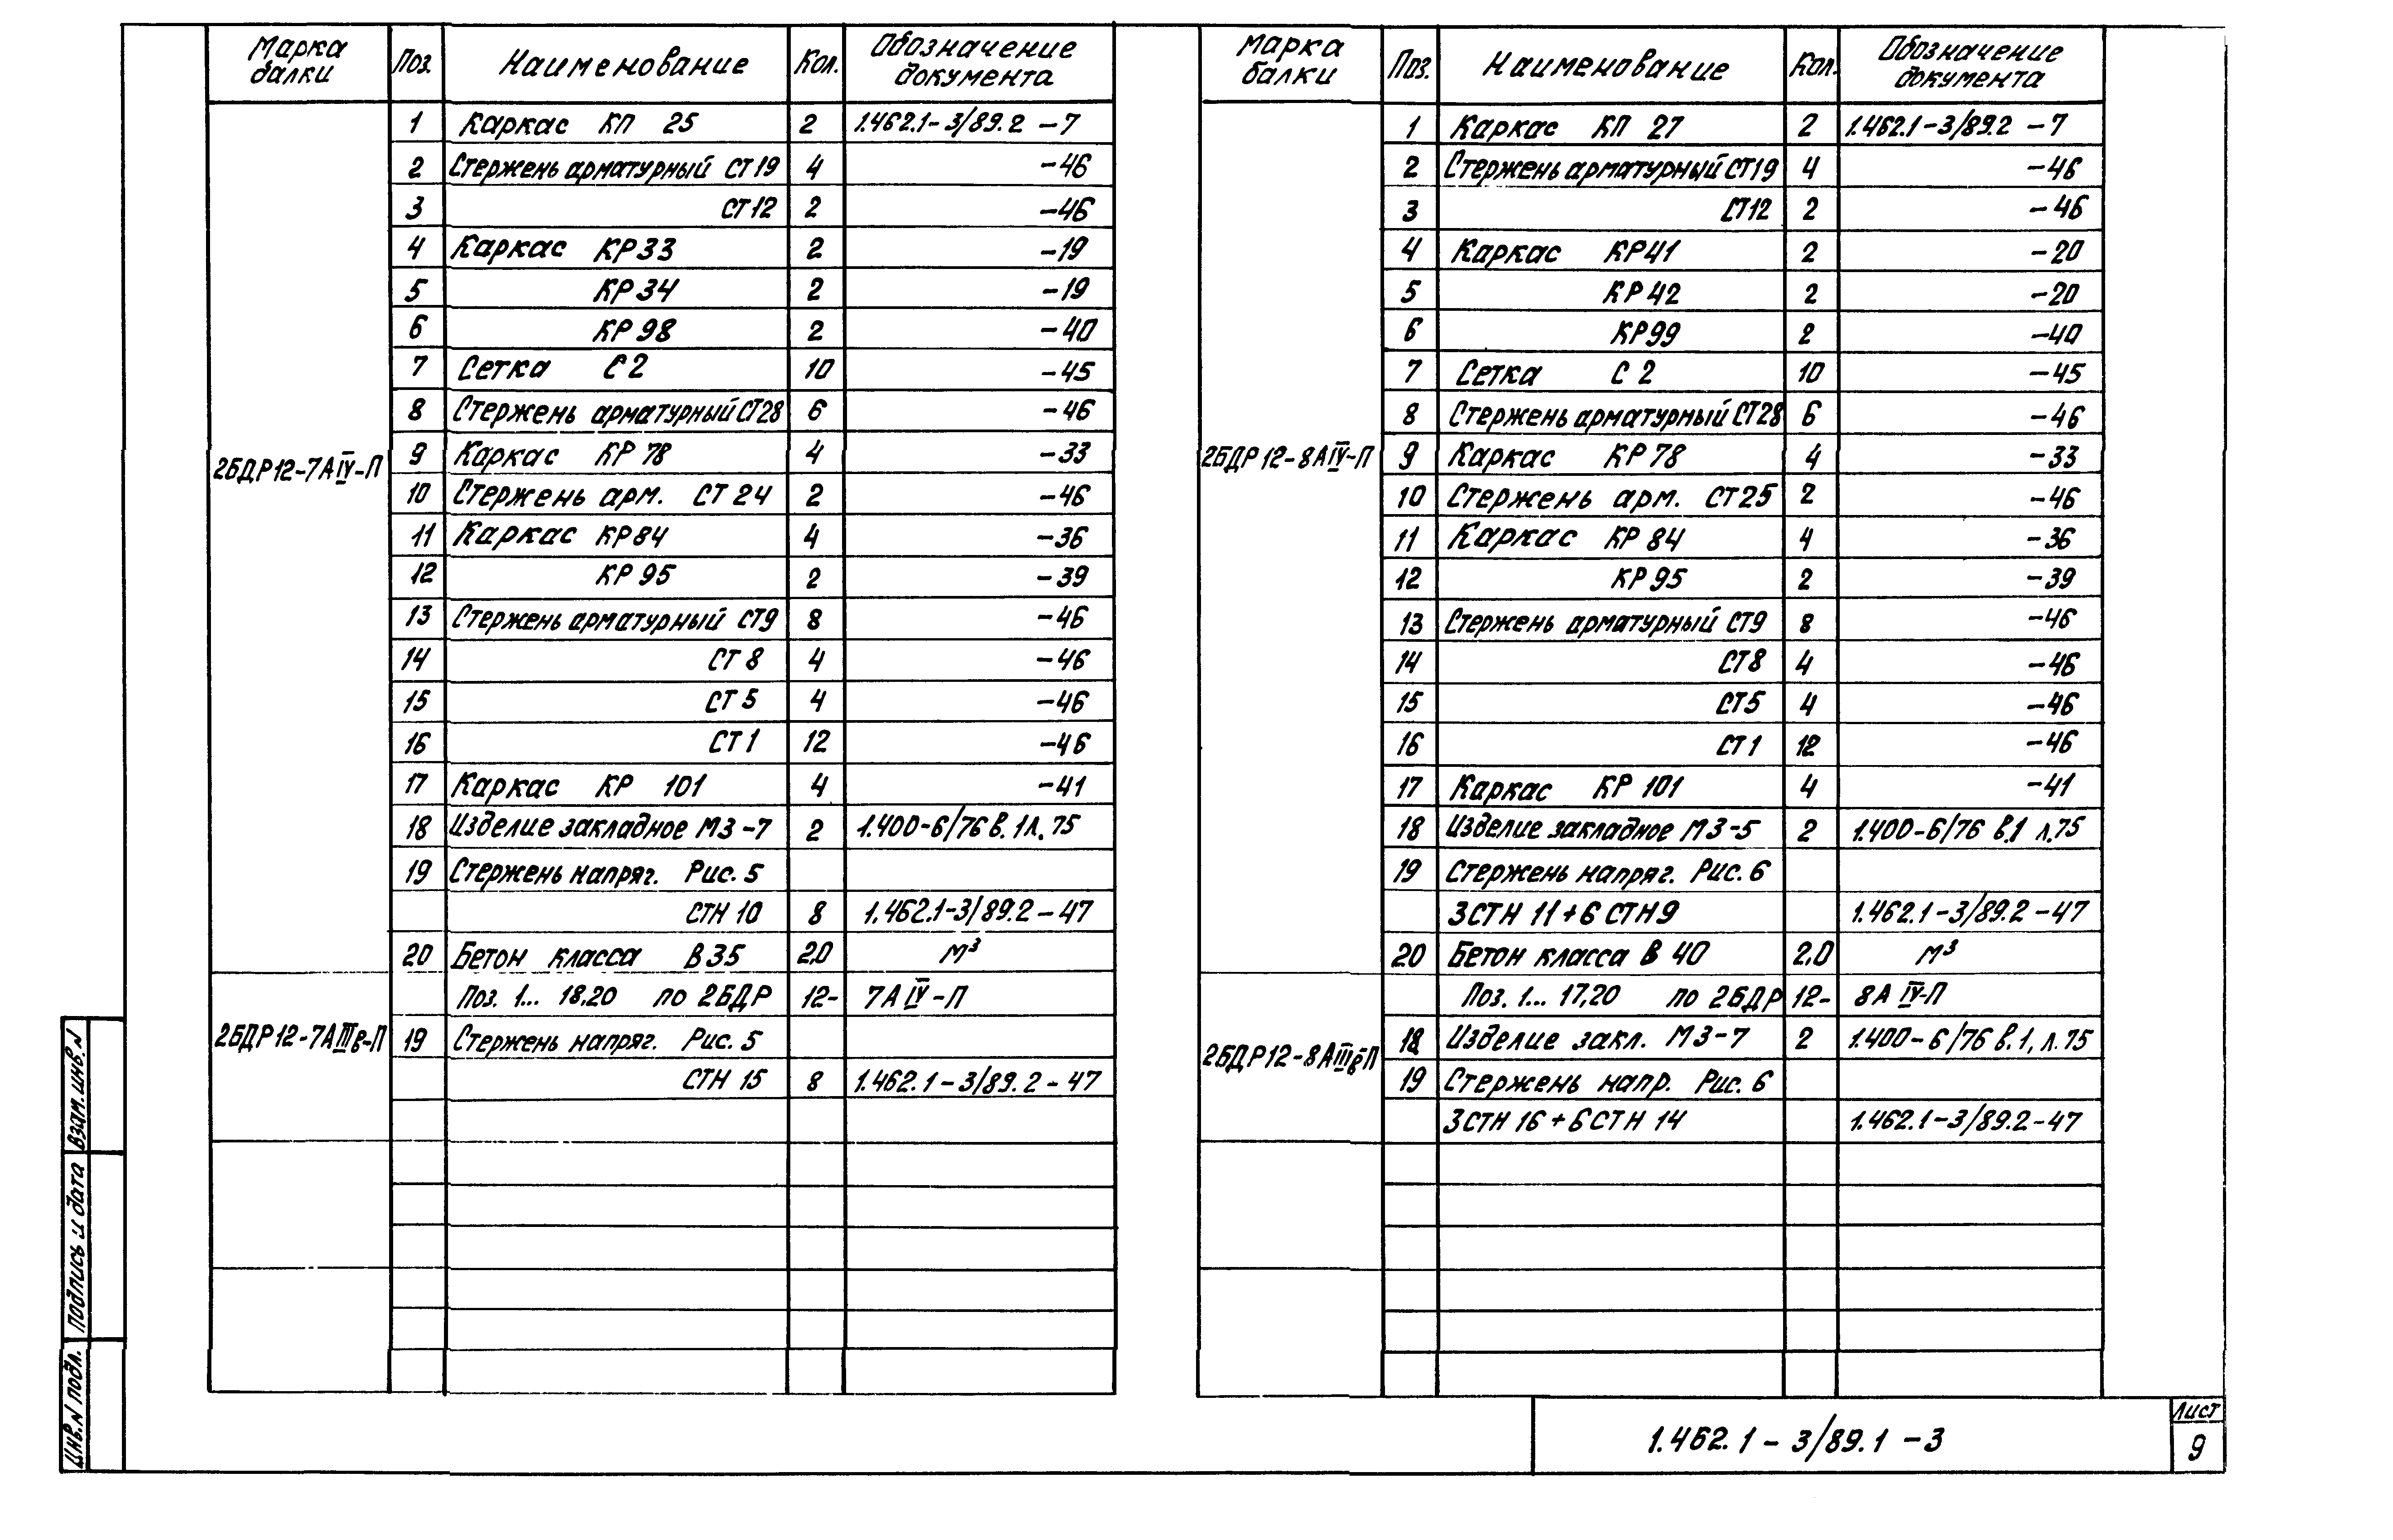 Марка балки Поз. Наименование Кол. Обозначение документа
2БДР12-7АIV-П
1 Каркас КП 25 2 1.462.1-3/89.2 -7
2 Стержень арматурный СТ19 4 -46
3 СТ12 2 -46
4 Каркас КР33 2 -19
5 КР34 2 -19
6 КР98 2 -40
7 Сетка С2 10 -45
8 Стержень арматурный СТ28 6 -46
9 Каркас КР 78 4 -33
10 Стержень арм. СТ 24 2 -46
11 Каркас КР84 4 -36
12 КР 95 2 -39
13 Стержень арматурный СТ9 8 -46
14 СТ 8 4 -46
15 СТ 5 4 -46
16 СТ 1 12 -46
17 Каркас КР 101 4 -41
18 Изделие закладное МЗ-7 2 1.400-6/76 в.1 л.75
19 Стержень напряг. Рис. 5
СТН 10 8 1.462.1-3/89.2-47
20 Бетон класса В35 2,0 м³
2БДР12-7АIIIв-П
Поз. 1... 18,20 по 2БДР 12- 7АIV-П
19 Стержень напряг. Рис. 5
СТН 15 8 1.462.1-3/89.2-47
Марка балки Поз. Наименование Кол. Обозначение документа
2БДР12-8АIV-П
1 Каркас КП 27 2 1.462.1-3/89.2 -7
2 Стержень арматурный СТ19 4 -46
3 СТ12 2 -46
4 Каркас КР41 2 -20
5 КР42 2 -20
6 КР99 2 -40
7 Сетка С 2 10 -45
8 Стержень арматурный СТ28 6 -46
9 Каркас КР78 4 -33
10 Стержень арм. СТ25 2 -46
11 Каркас КР 84 4 -36
12 КР95 2 -39
13 Стержень арматурный СТ9 8 -46
14 СТ8 4 -46
15 СТ5 4 -46
16 СТ1 12 -46
17 Каркас КР 101 4 -41
18 Изделие закладное МЗ-5 2 1.400-6/76 в.1 л.75
19 Стержень напряг. Рис. 6
3СТН 11+6 СТН9 1.462.1-3/89.2-47
20 Бетон класса В 40 2,0 м³
2БДР12-8АIIIв-П
Поз. 1... 17,20 по 2БДР 12- 8АIV-П
18 Изделие закл. МЗ-7 2 1.400-6/76 в.1, л.75
19 Стержень напр. Рис. 6
3СТН 16+6СТН 14 1.462.1-3/89.2-47
Взам. инв. N
Подпись и дата
Инв. N подл.
1.462.1-3/89.1-3
Лист
9